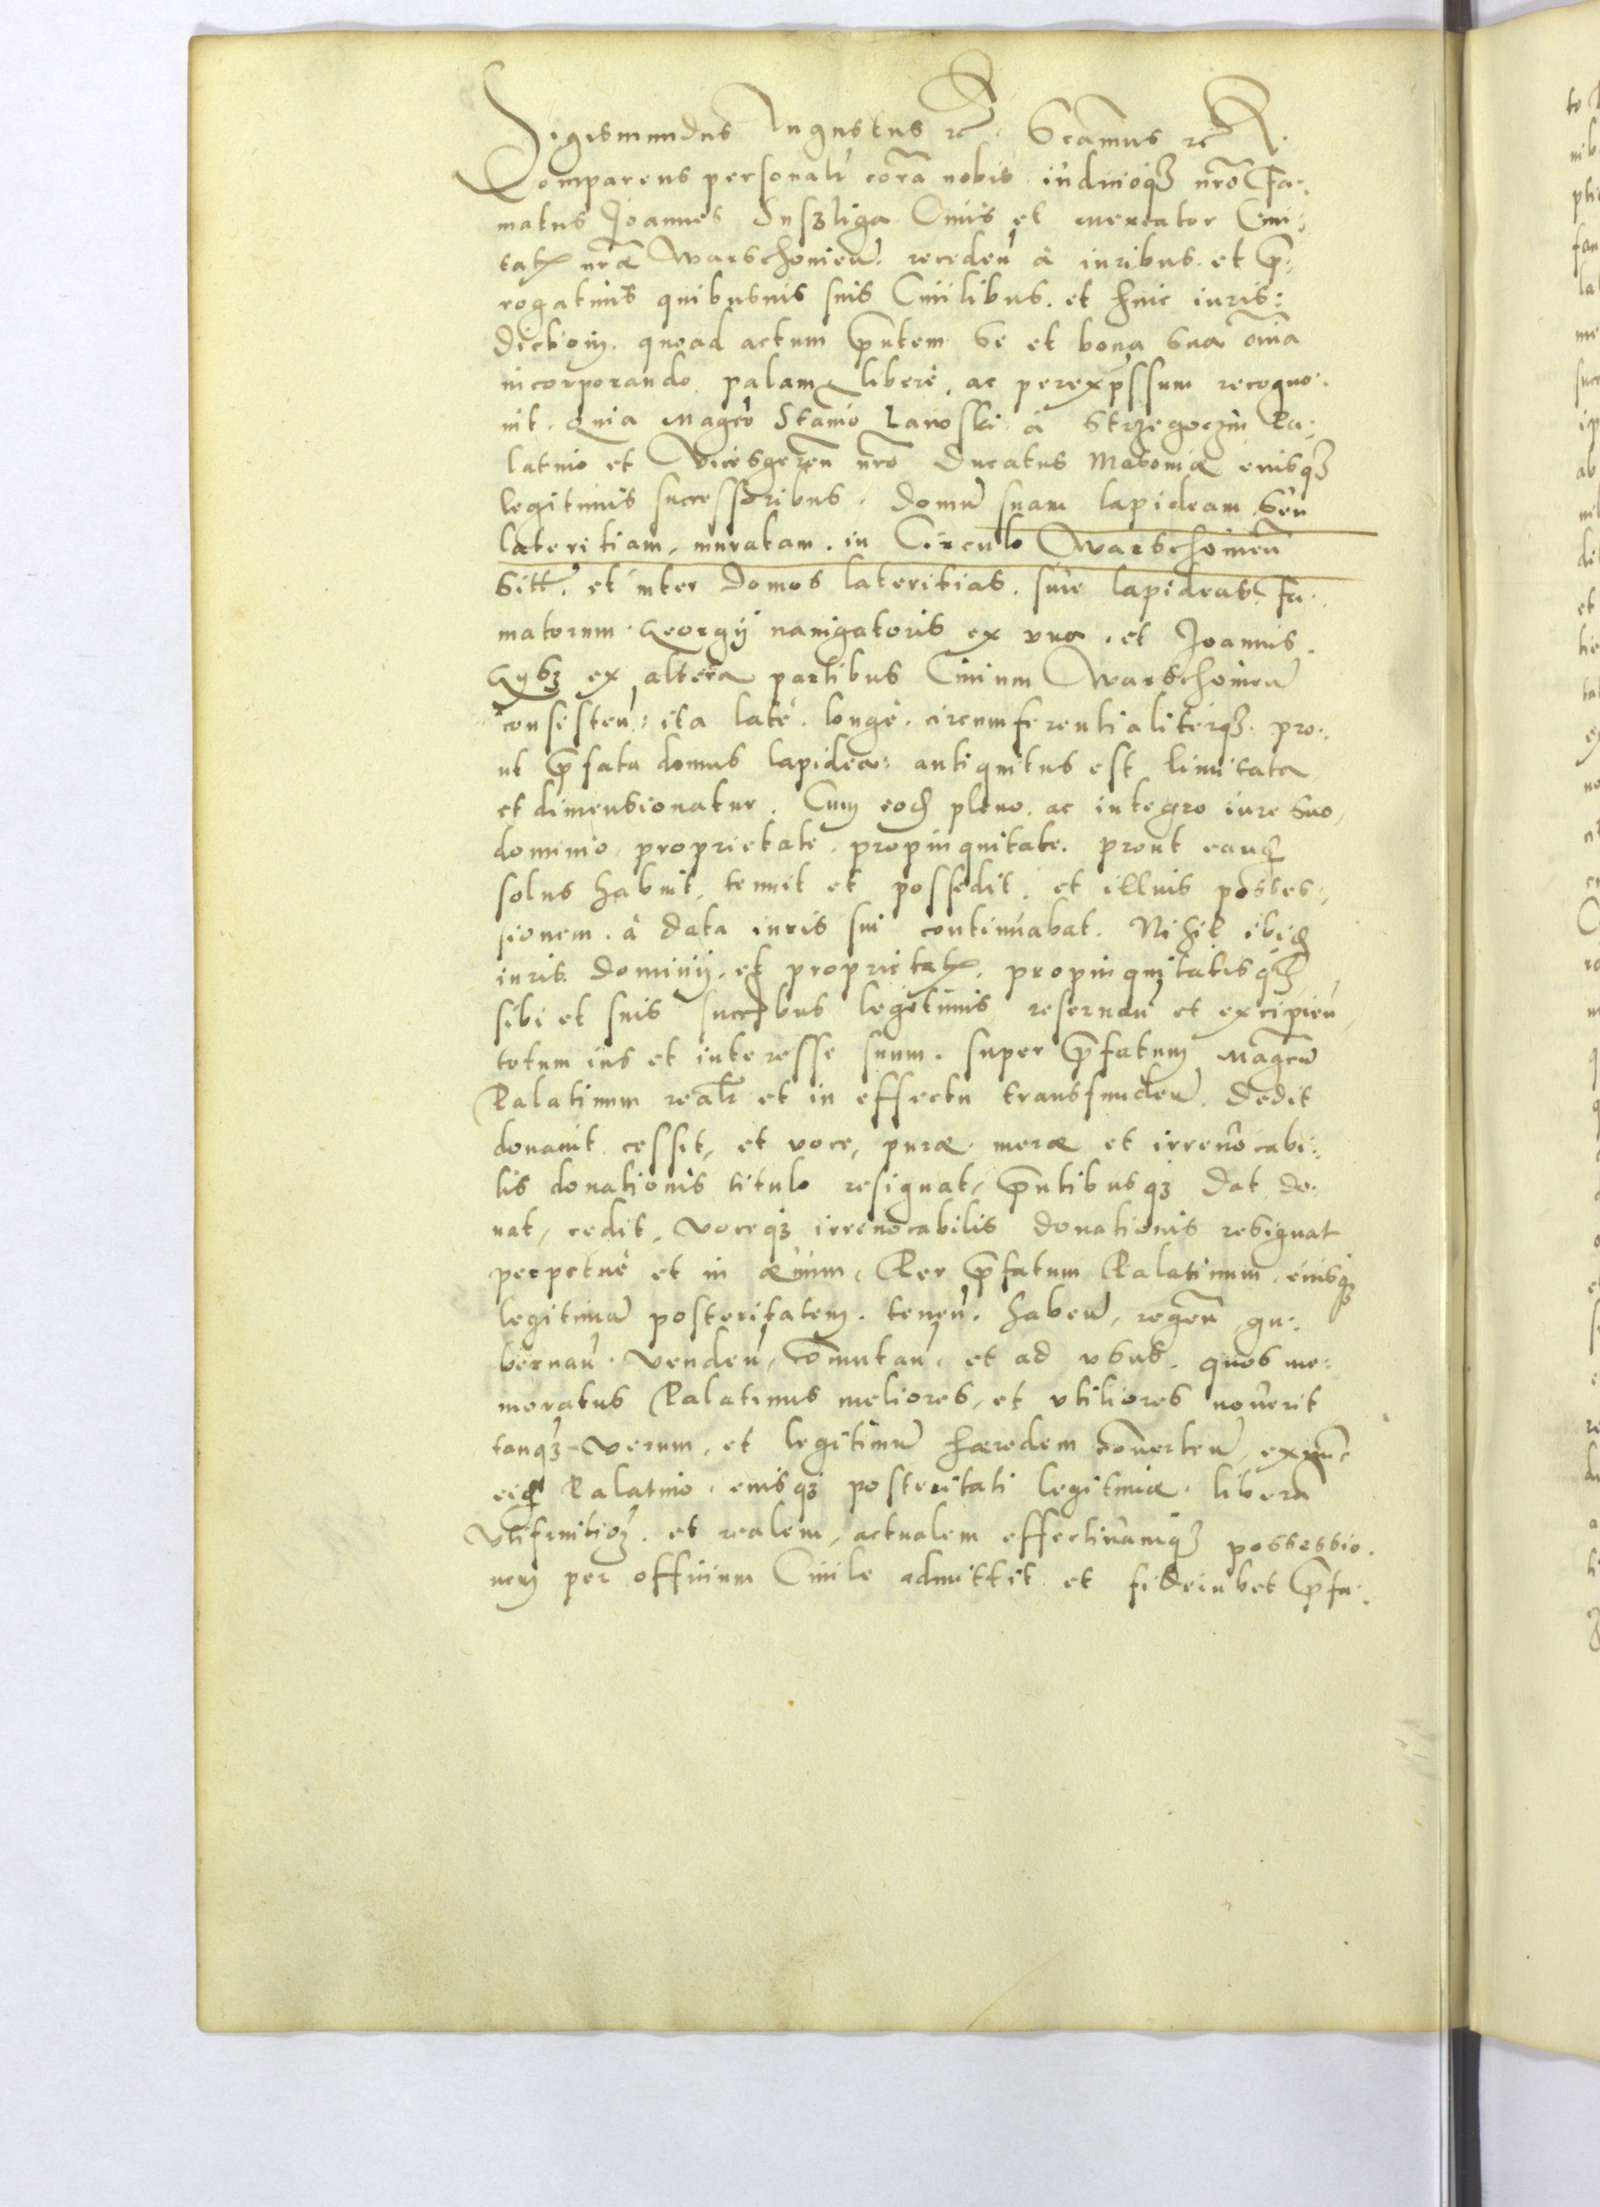 Sigismundus Augustus etc. Scamus etc.
Comparens personalr cora nobis iudicioqz nro Fa:
matus Joannes Duszliga Civis et mercator Civi:
tatis nrae Warschovien. receden à iuribus et prę:
rogativis quibusvis suis Civilibus. et huic iuris:
dictioni. quoad actum pntem se et bona sua oia
incorporando palam, liberè, ac perexpssum recogno:
vit. Quia Magco Stanio Lawski à Strzegoczin Pa:
latino et Vicesgeren nro Ducatus Masoviae eiusqz
legitimis successoribus. domu suam lapideam seu
lateritiam, muratam. in Circulo Warschovien
sitt. et inter domos lateritias. sive lapideas. Fa:
matorum Georgij navigatoris ex una. et Joannis.
Gysz ex altera partibus Civium Warschovien
consisten: ita latè. longè. circumferentialiterqz. pro:
ut prfata domus lapidea: antiquitus est limitata
et dimensionatur. Cum eod pleno. ac integro iure suo,
dominio, proprietate. propinquitate. prout eand
solus habuit, tenuit et possedit. et illius posses:
sionem. à data iuris sui continuabat. Nihil ibid
iuris dominij. et proprietatis. propinquitatisqz
sibi et suis succribus legitimis reservan et excipien,
totum ius et interesse suum. super prfatum Magcu
Palatinum realr et in effectu transfunden. Dedit
donavit cessit, et voce, purae merae et irrevocabi:
lis donationis titulo resignat, pntibusqz dat do:
nat, cedit, voceqz irrevocabilis donationis resignat
perpetuè et in aevum, Per prfatum Palatinum, eiusqz
legitima posteritatem. tenen. haben, regen gu:
bernan. venden, comutan. et ad usus. quos me:
moratus Palatinus meliores, et utiliores noverit
tanqz verum, et legitimu haeredem converten, exnunc
eid Palatino. eiusqz posteritati legitimae. libera
Utifruitioz. et realem, actualem effectivamqz possessio.
nem per officium Civile admittit et fideiubet prfa: